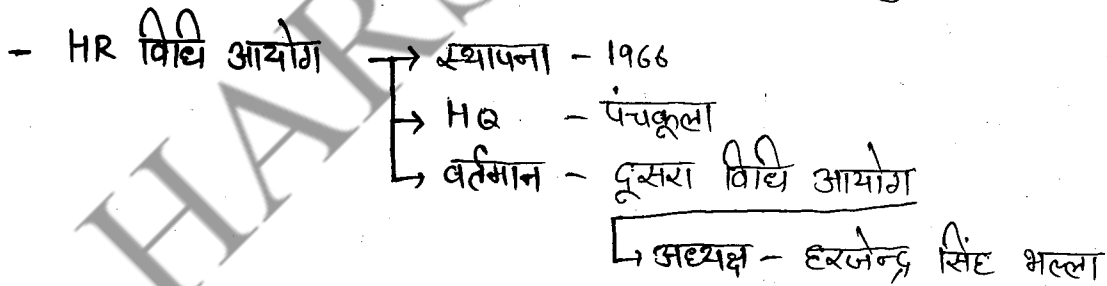 - HR विधि आयोग → स्थापना - 1966
→ HQ - पंचकूला
→ वर्तमान - दूसरा विधि आयोग
↳ अध्यक्ष - हरजेन्द्र सिंह भल्ला
HARS